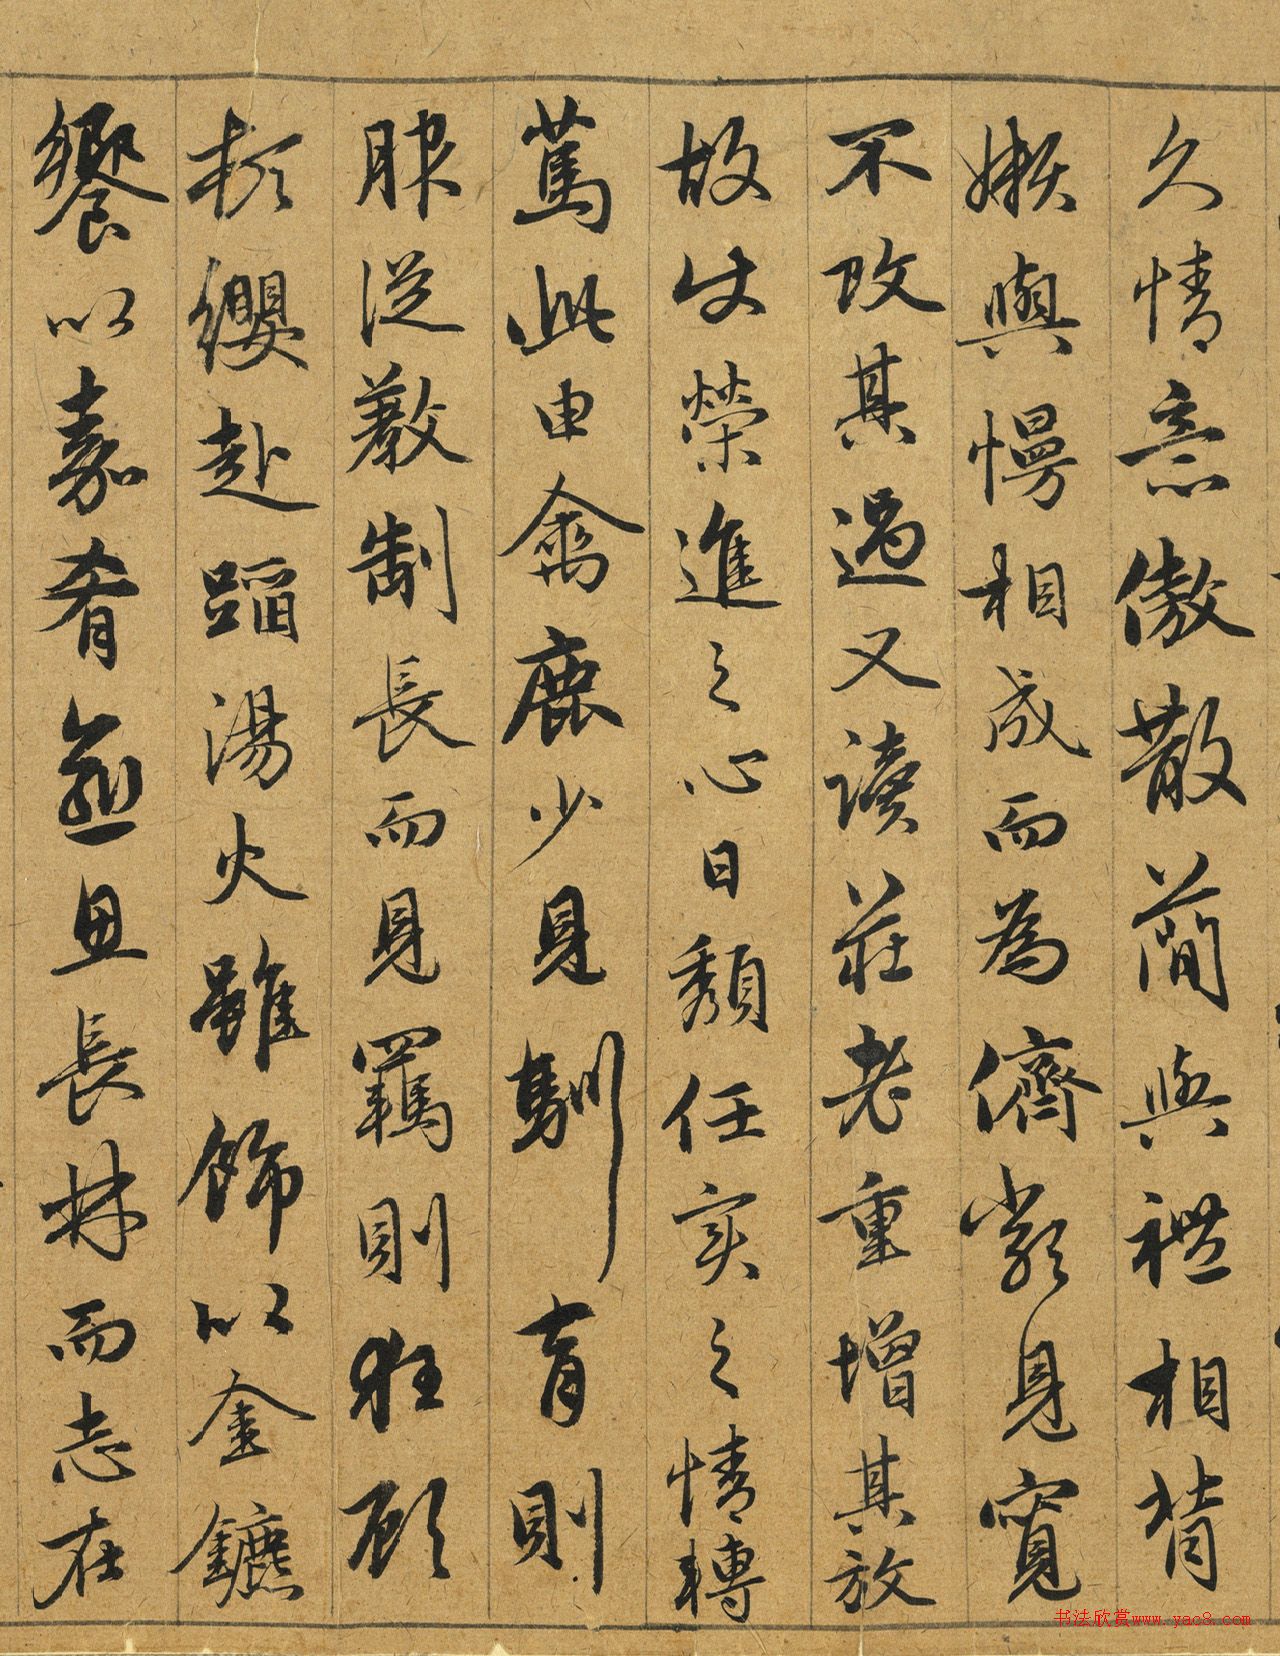 久情意傲散簡與禮相背
嬾與慢相成而為儕類見寬
不攻其過又讀莊老重增其放
故使榮進之心日頽任實之情轉
篤此由禽鹿少見馴育則
服從教制長而見羈則狂顧
頓纓赴蹈湯火雖飾以金鑣
饗以嘉肴愈思長林而志在
书法欣赏www.yac8.com